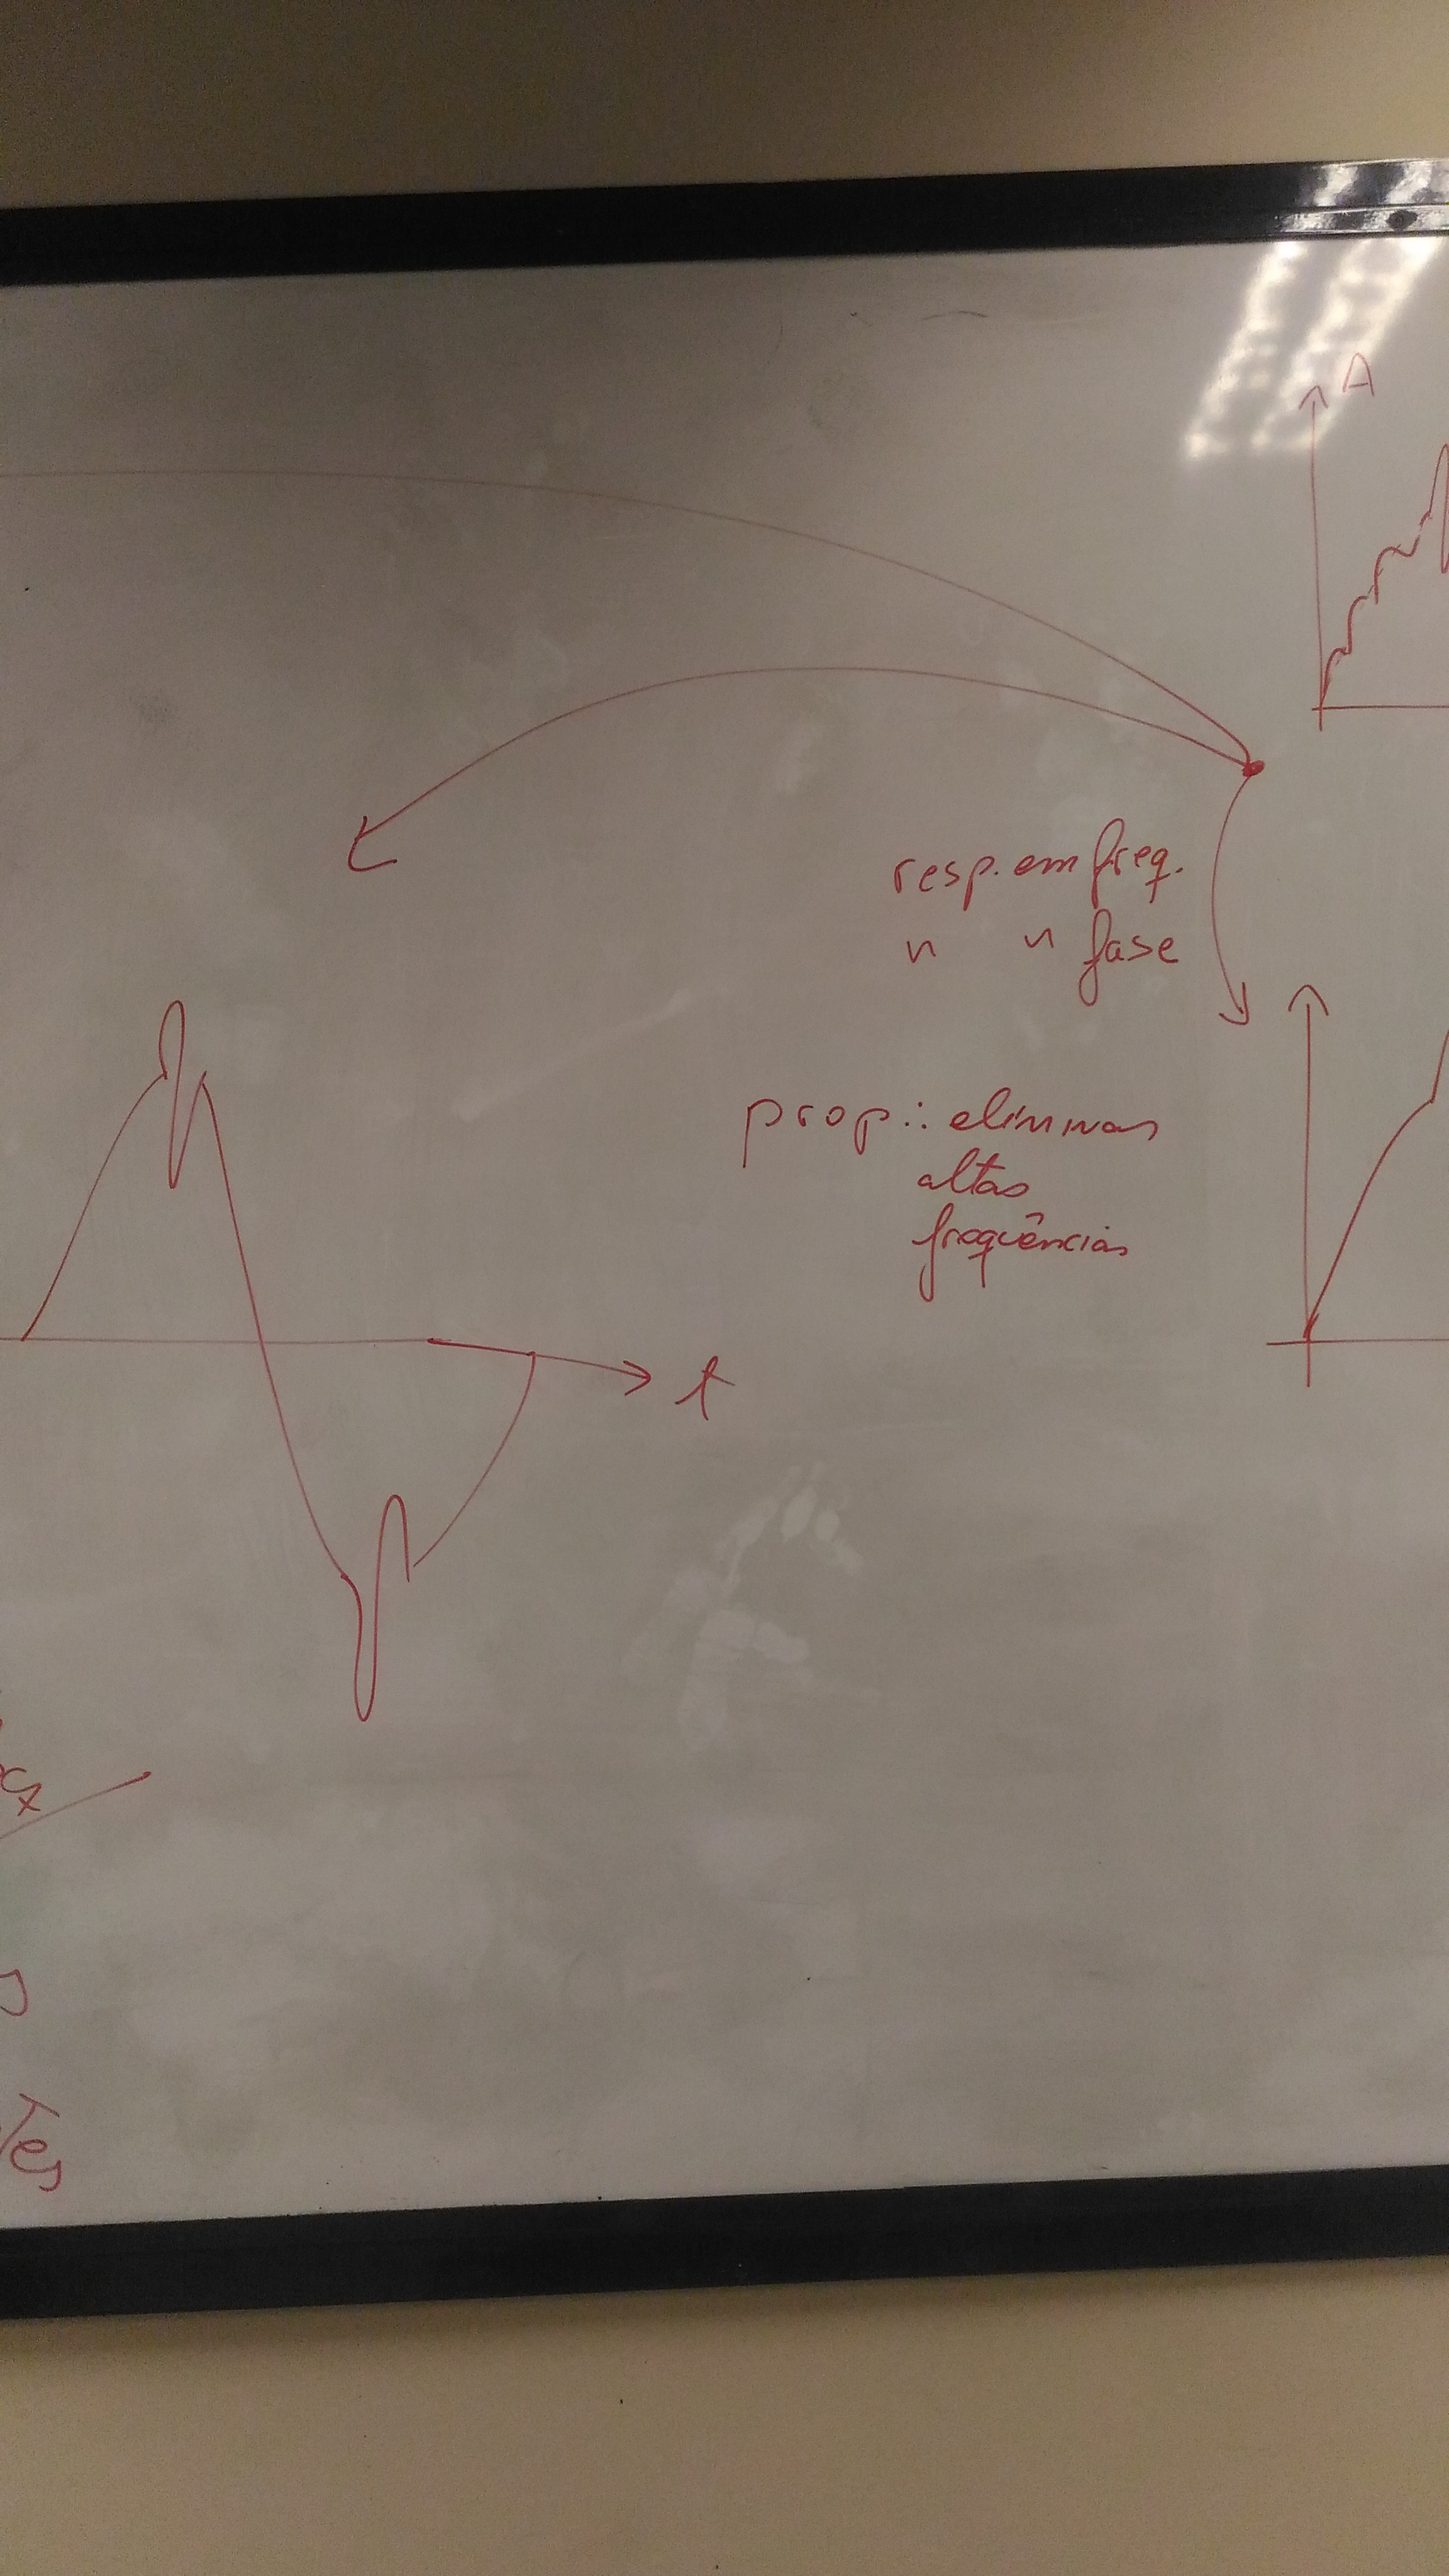 A
resp. em freq.
" " fase
prop.: eliminar
altas
frequências
t